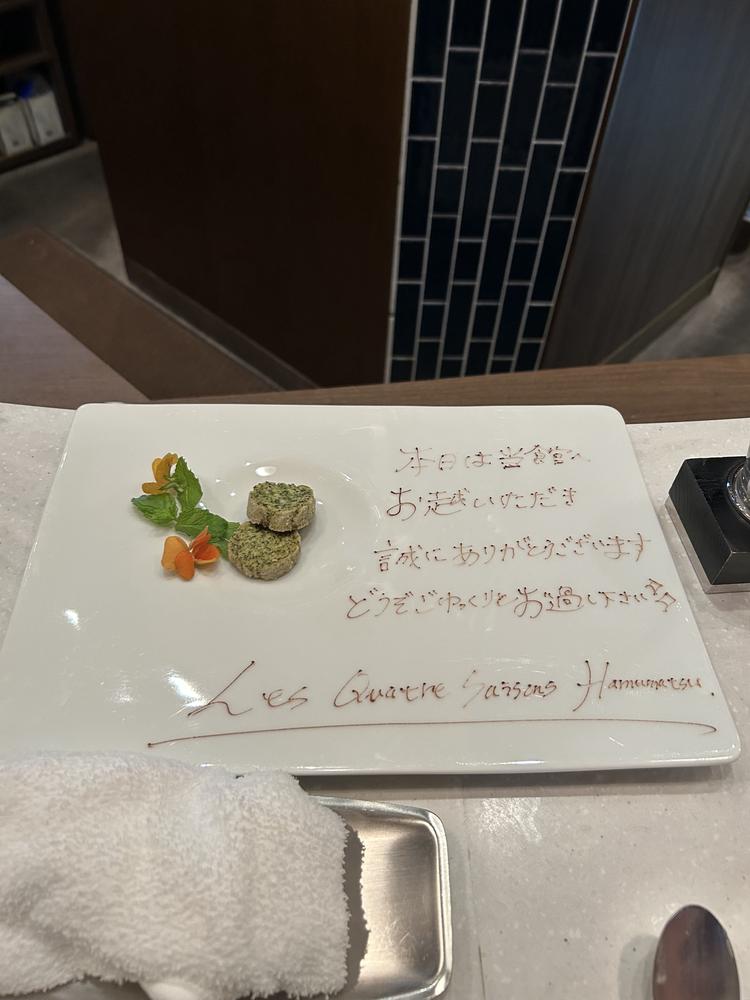 本日は当食堂へ
お越しいただき
誠にありがとうございます
どうぞごゆっくりとお過し下さい
Les Quatre Saisons Hamamatsu.